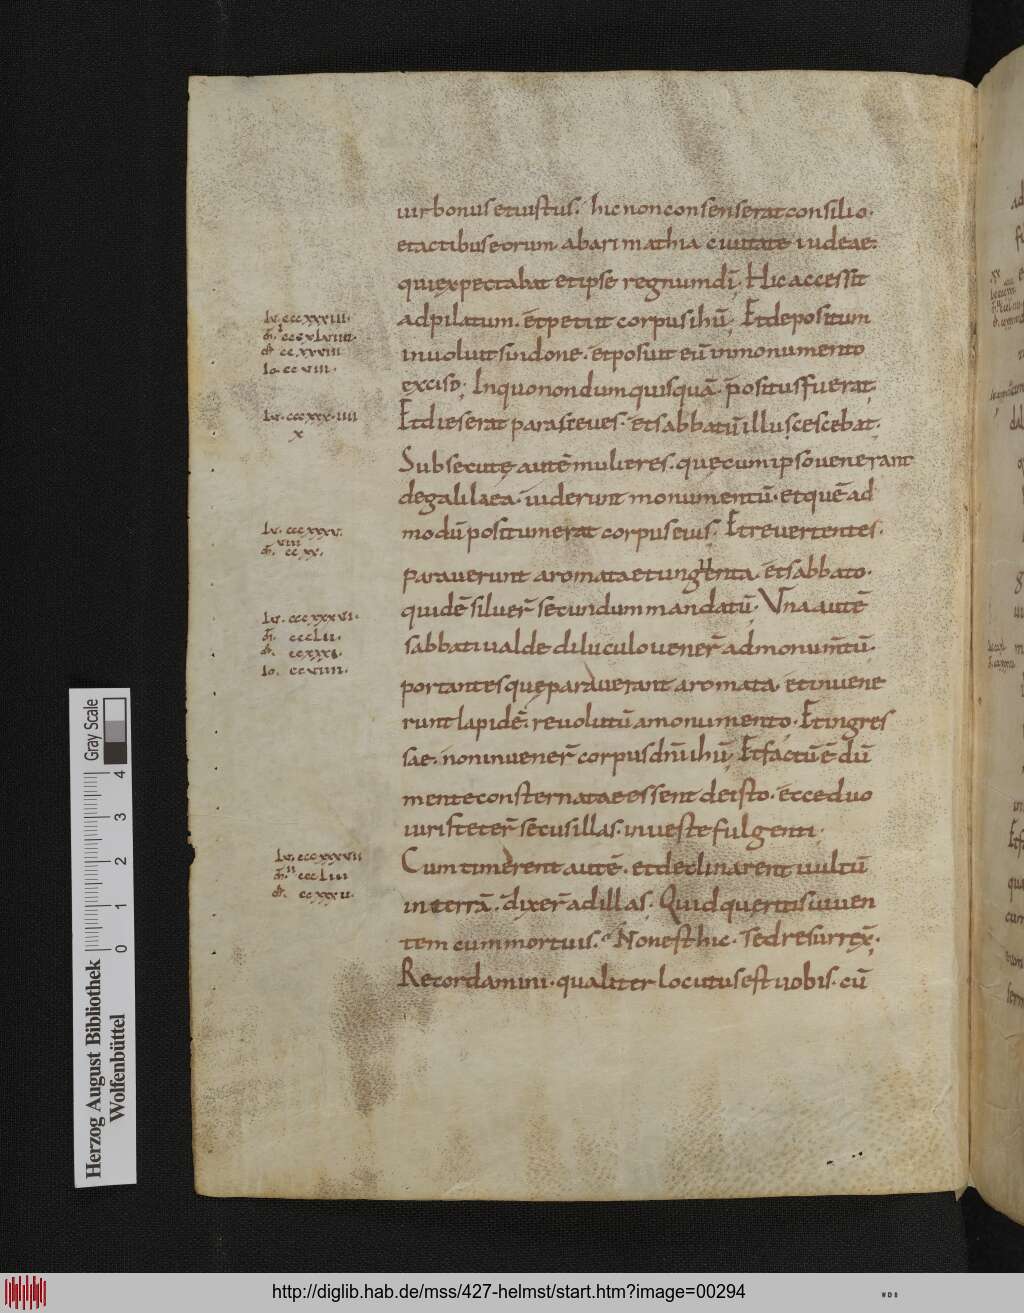 uir bonus et iustus. hic non consenserat consilio.
et actibus eorum. ab arimathia ciuitate iudeae.
qui expectabat et ipse regnum dī. Hic accessit
ad pilatum. et petiit corpus ihū. Et depositum
inuoluit sindone. et posuit eū in monumento
exciso. In quo nondum quisquā positus fuerat.
Et dies erat parasceues. et sabbatū illuscescebat.
Subsecutę autē mulieres. quę cum ipso uenerant
de galilaea. uiderunt monumentū. et quē ad
modū positum erat corpus eius. Et reuertentes.
parauerunt aromata et ungenta. et sabbato.
quidē siluer̄ secundum mandatū. Vna autē
sabbati ualde diluculo uener̄ ad monum̄tū.
portantes quę parauerant aromata. et inuene
runt lapidē reuolutū a monumento. Et ingres
sae. non inuener̄ corpus dn̄i ihū. Et factū ē dū
mente consternatae essent de isto. ecce duo
uiri steter̄ secus illas. in ueste fulgenti.
Cum timerent autē. et declinarent uultū
in terrā. dixer̄ ad illas. Quid queritis uiuen
tem cum mortuis. Non est hic. sed resurrex̄.
Recordamini. qualiter locutus est uobis. cū
Lv. cccxxxiii.
cc xxviii
Io. ccviii.
Lv. cccxxxiiii
x
Lv. cccxxxv.
viii
ccxx.
Lv. cccxxxvi.
cccLii.
ccxxxi.
Io. ccviiii.
Lv. cccxxxvii
cccLiii
ccxxxv.
Gray Scale
0 1 2 3 4
Herzog August Bibliothek
Wolfenbüttel
http://diglib.hab.de/mss/427-helmst/start.htm?image=00294